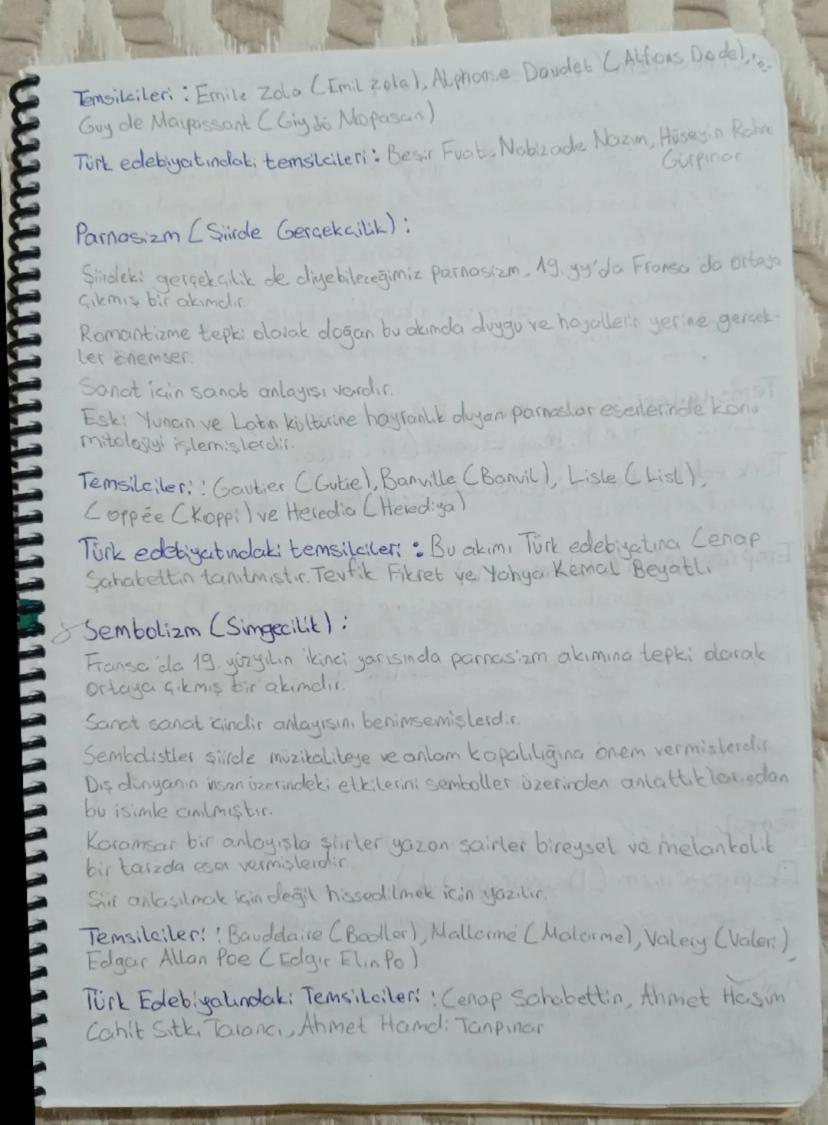 Temsilcileri : Emile Zola (Emil zola), Alphonse Daudet (Alfons Dode),
Guy de Maupassant (Giy dö Mopasan)
Türk edebiyatındaki temsilcileri : Beşir Fuat, Nabizade Nazım, Hüseyin Rahmi
Gürpınar
Parnasizm (Şiirde Gerçekçilik) :
Şiirdeki gerçekçilik de diyebileceğimiz parnasizm, 19. yy'da Fransa'da ortaya
çıkmış bir akımdır.
Romantizme tepki olarak doğan bu akımda duygu ve hayallerin yerine gerçek-
ler önemser.
Sanat için sanat anlayışı vardır.
Eski Yunan ve Latin kültürine hayranlık duyan parnaslar eserlerinde konu
mitolojiyi işlemişlerdir.
Temsilcileri : Gautier (Gutie), Banville (Banvil), Lisle (Lisl),
Coppée (Koppi) ve Heredia (Herediya)
Türk edebiyatındaki temsilcileri : Bu akımı Türk edebiyatına Cenap
Şahabettin tanıtmıştır. Tevfik Fikret ve Yahya Kemal Beyatlı
Sembolizm (Simgecilik) :
Fransa'da 19. yüzyılın ikinci yarısında parnasizm akımına tepki olarak
ortaya çıkmış bir akımdır.
Sanat sanat içindir anlayışını benimsemişlerdir.
Sembolistler şiirde müzikaliteye ve anlam kapalılığına önem vermişlerdir
Dış dünyanın insan üzerindeki etkilerini semboller üzerinden anlattıklarından
bu isimle anılmıştır.
Karamsar bir anlayışla şiirler yazan şairler bireysel ve melankolik
bir tarzda eser vermişlerdir
Şiir anlaşılmak için değil hissedilmek için yazılır.
Temsilcileri : Bauddaire (Bodler), Mallarme (Malarme), Valery (Valeri),
Edgar Allan Poe (Edgır Elın Po)
Türk Edebiyatındaki Temsilcileri : Cenap Şahabettin, Ahmet Haşim
Cahit Sıtkı Tarancı, Ahmet Hamdi Tanpınar